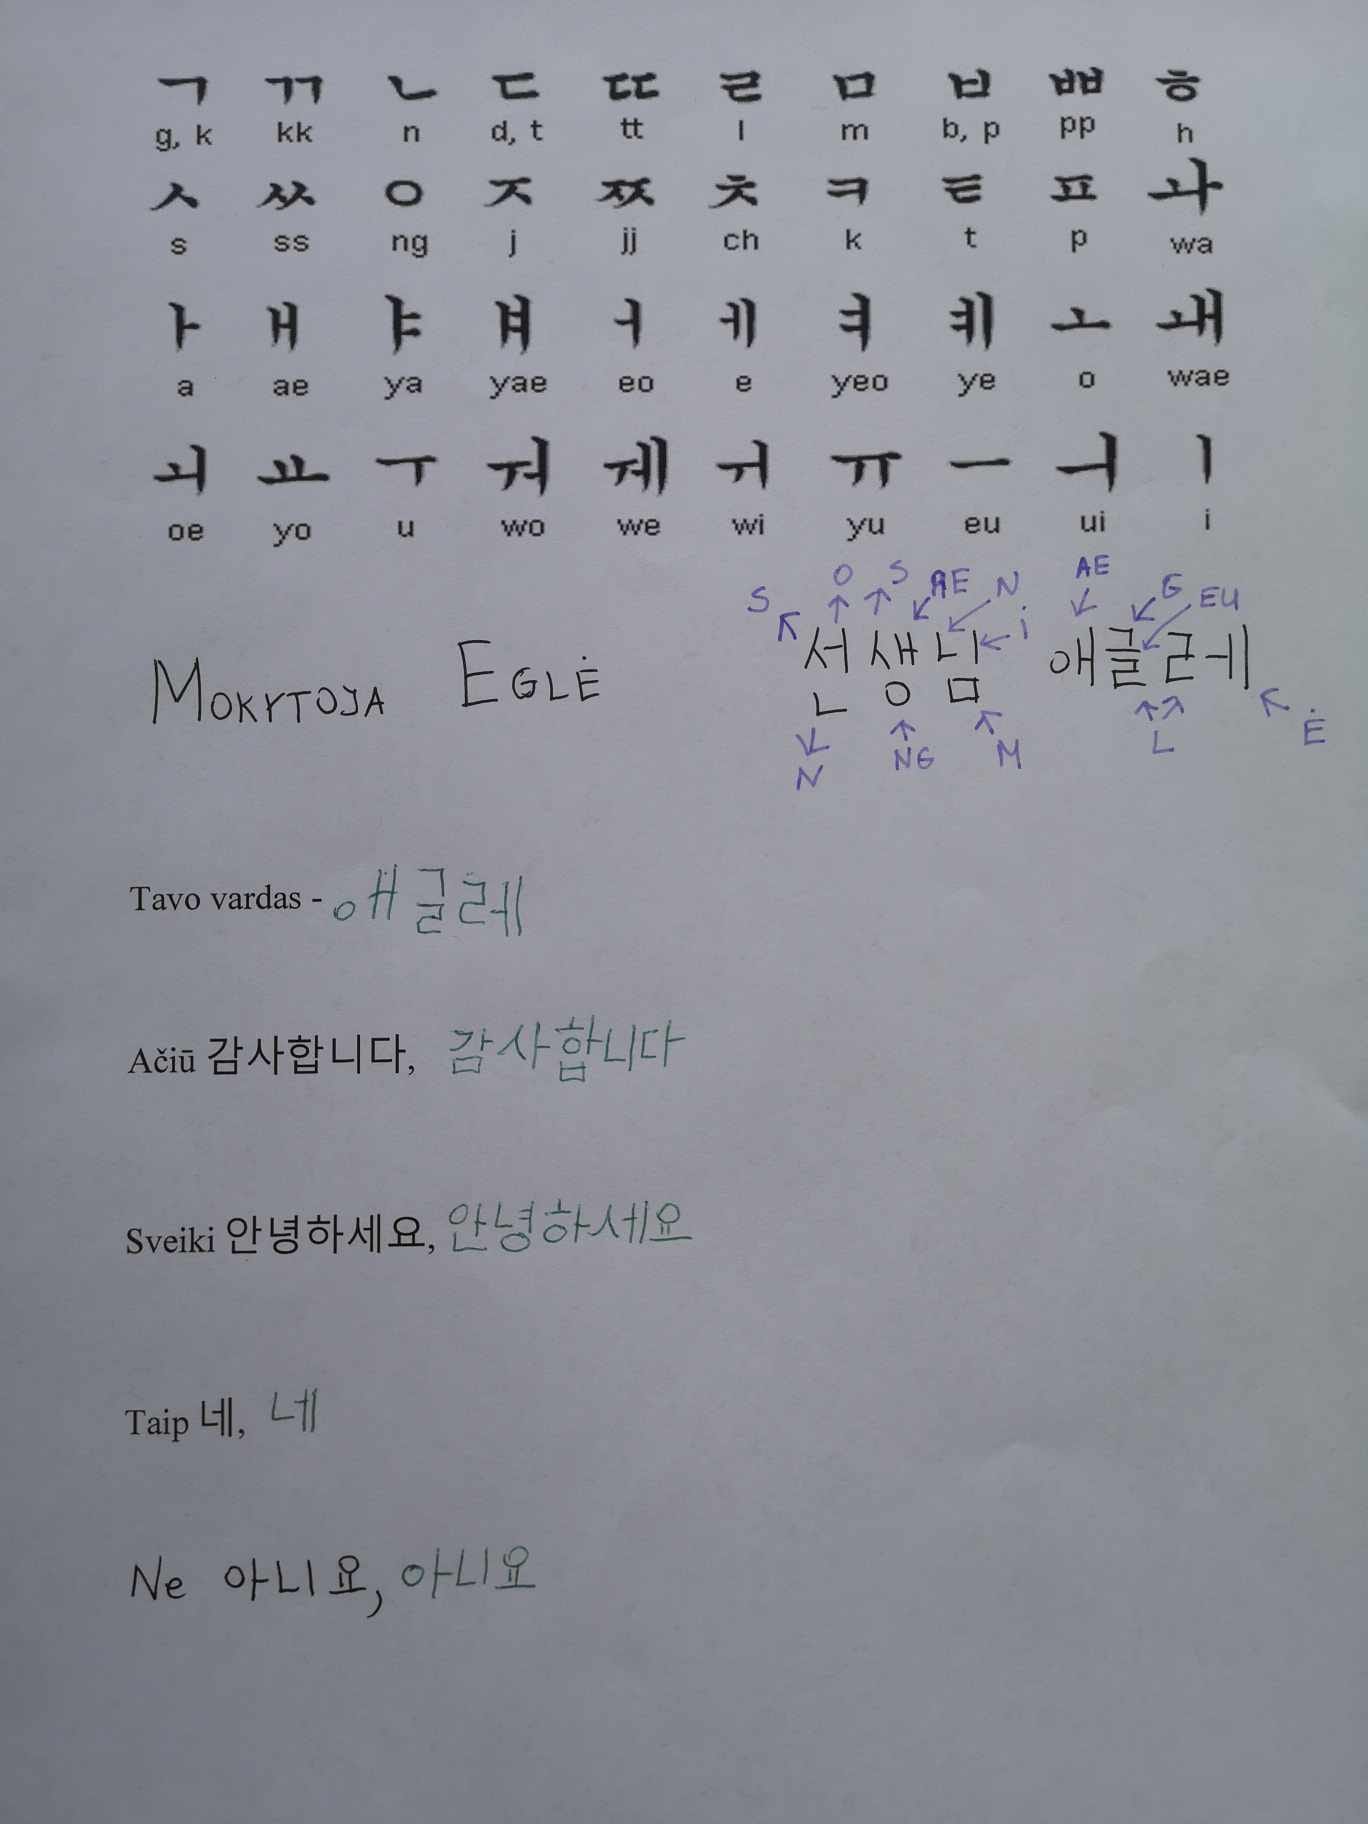 ㄱ ㄲ ㄴ ㄷ ㄸ ㄹ ㅁ ㅂ ㅃ ㅎ
g, k kk n d, t tt l m b, p pp h
ㅅ ㅆ ㅇ ㅈ ㅉ ㅊ ㅋ ㅌ ㅍ ㅘ
s ss ng j jj ch k t p wa
ㅏ ㅐ ㅑ ㅒ ㅓ ㅔ ㅕ ㅖ ㅗ ㅙ
a ae ya yae eo e yeo ye o wae
ㅚ ㅛ ㅜ ㅝ ㅞ ㅟ ㅠ ㅡ ㅢ ㅣ
oe yo u wo we wi yu eu ui i
S O S AE N i AE G EU
MOKYTOJA EGLĖ 선생님 애글레
N NG M L Ė
Tavo vardas - 애글레
Ačiū 감사합니다, 감사합니다
Sveiki 안녕하세요, 안녕하세요
Taip 네, 네
Ne 아니요, 아니요